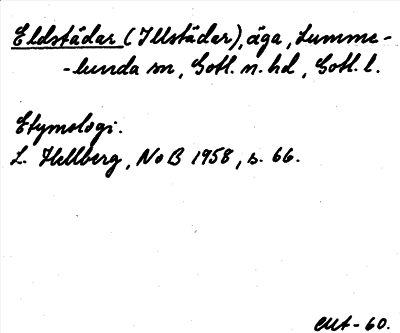 Eldstädar (Illstädar), äga, Lumme-
-lunda sn, Gotl. n. hd, Gotl. l.
Etymologi.
L. Hellberg, NoB 1958, s. 66.
-60.